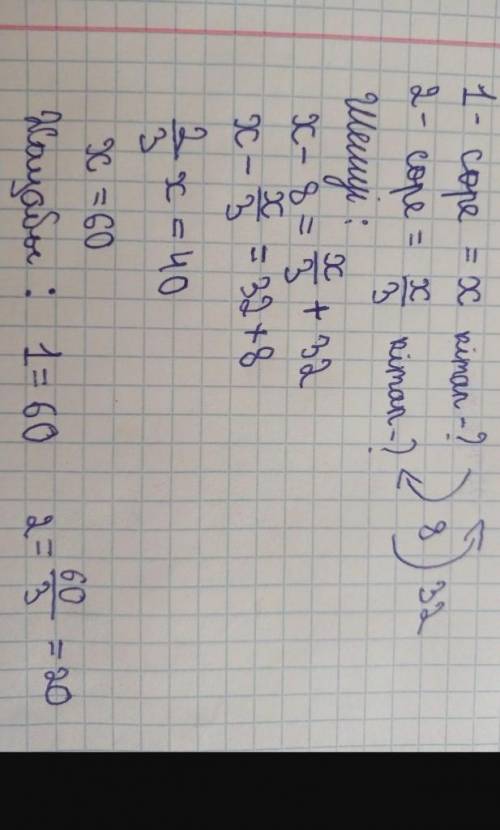 1 - сөре = x кітап - ? 8
2 - сөре = x/3 кітап - ? 32
Шешуі:
x - 8 = x/3 + 32
x - x/3 = 32 + 8
2/3 x = 40
x = 60
Жауабы: 1 = 60 2 = 60/3 = 20